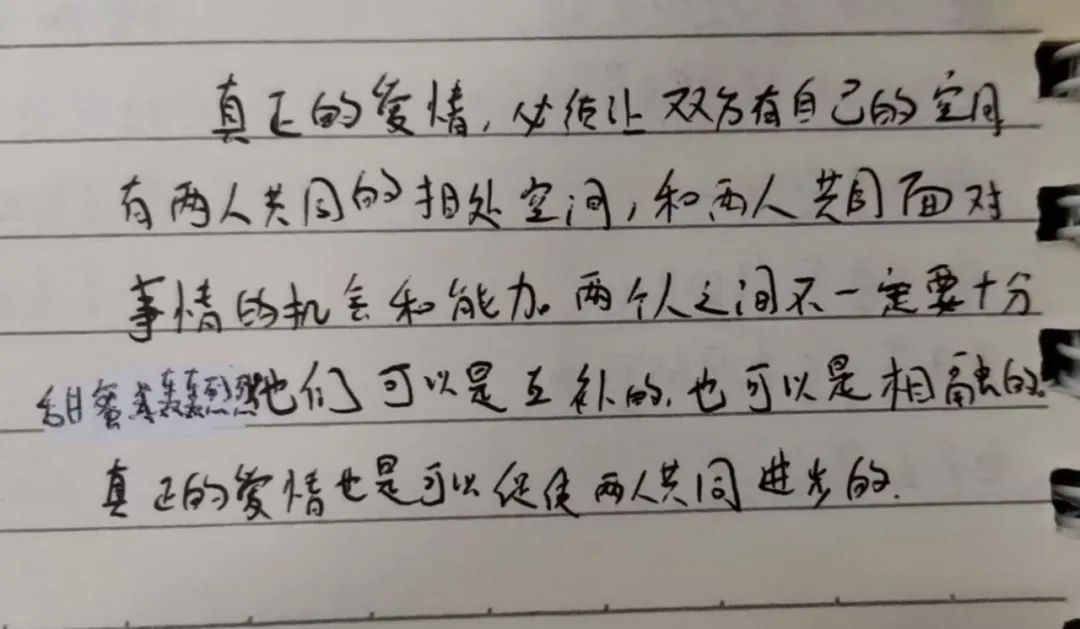 真正的爱情,必须让双方有自己的空间
有两人共同的相处空间,和两人共同面对
事情的机会和能力。两个人之间不一定要十分
甜蜜或轰轰烈烈他们可以是互补的.也可以是相融的.
真正的爱情也是可以促使两人共同进步的.